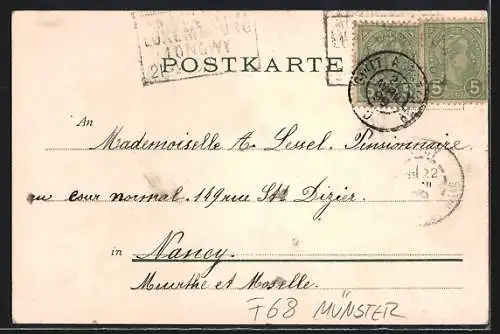 LUXEMBOURG
LONGWY
POSTKARTE
5 5 5
An
Mademoiselle A. Lessel. Pensionnaire
au cour normal. 149 rue St Dizier.
in Nancy.
Meurthe et Moselle.
F68 MÜNSTER